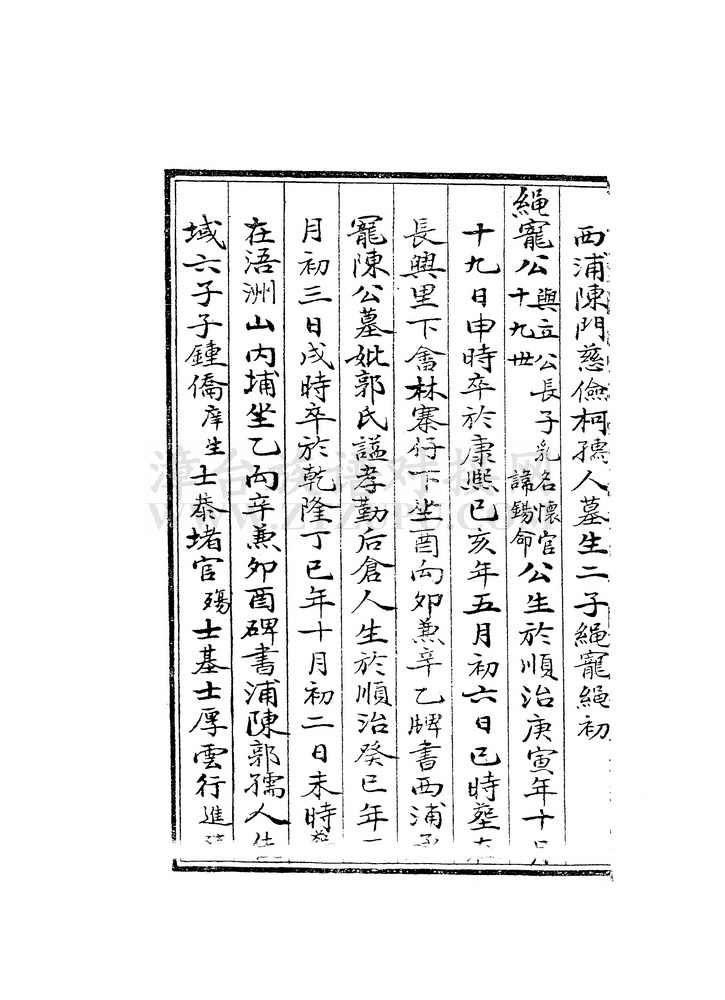 西浦陳門慈儉柯孺人墓生二子繩寵繩初
繩寵公與立公長子乳名懷官十九世諱錫命公生於順治庚寅年十月
十九日申時卒於康熙己亥年五月初六日巳時塟在
長興里下畬林寨仔下坐酉向卯兼辛乙牌書西浦
寵陳公墓妣郭氏謚孝勤后倉人生於順治癸巳年
月初三日戌時卒於乾隆丁巳年十月初二日未時
在浯洲山內埔坐乙向辛兼卯酉碑書浦陳郭孺人
域六子子鍾僑庠生士泰堵官殤士基士厚雲行進
漳台族譜對接網
WWW.ZTZUPU.COM